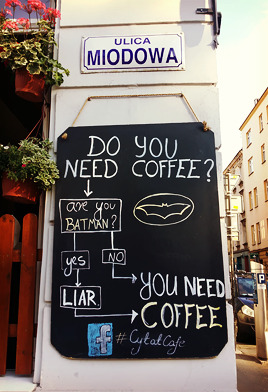 ULICA
MIODOWA
DO YOU
NEED COFFEE?
are you
BATMAN?
yes
NO
LIAR
YOU NEED
COFFEE
f #CytatCafe
P